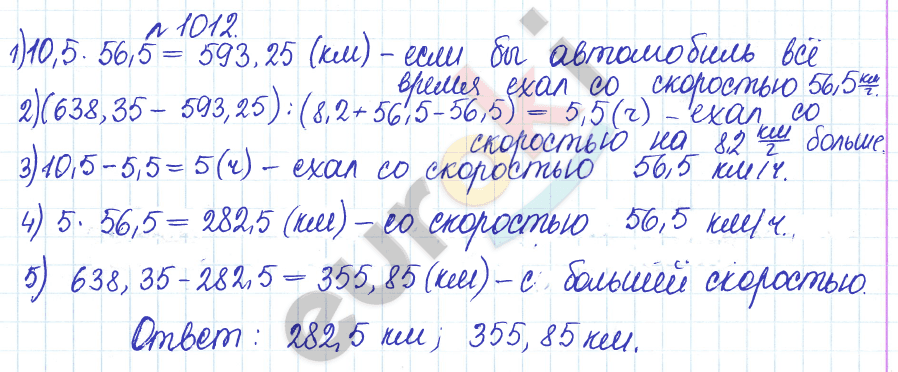 № 1012.
1) 10,5 · 56,5 = 593,25 (км) – если бы автомобиль всё
время ехал со скоростью 56,5 км/ч.
2) (638,35 – 593,25) : (8,2 + 56,5 – 56,5) = 5,5 (ч) – ехал со
скоростью на 8,2 км/ч больше.
3) 10,5 – 5,5 = 5 (ч) – ехал со скоростью 56,5 км/ч.
4) 5 · 56,5 = 282,5 (км) – со скоростью 56,5 км/ч.
5) 638,35 – 282,5 = 355,85 (км) – с большей скоростью.
Ответ: 282,5 км; 355,85 км.
euroki